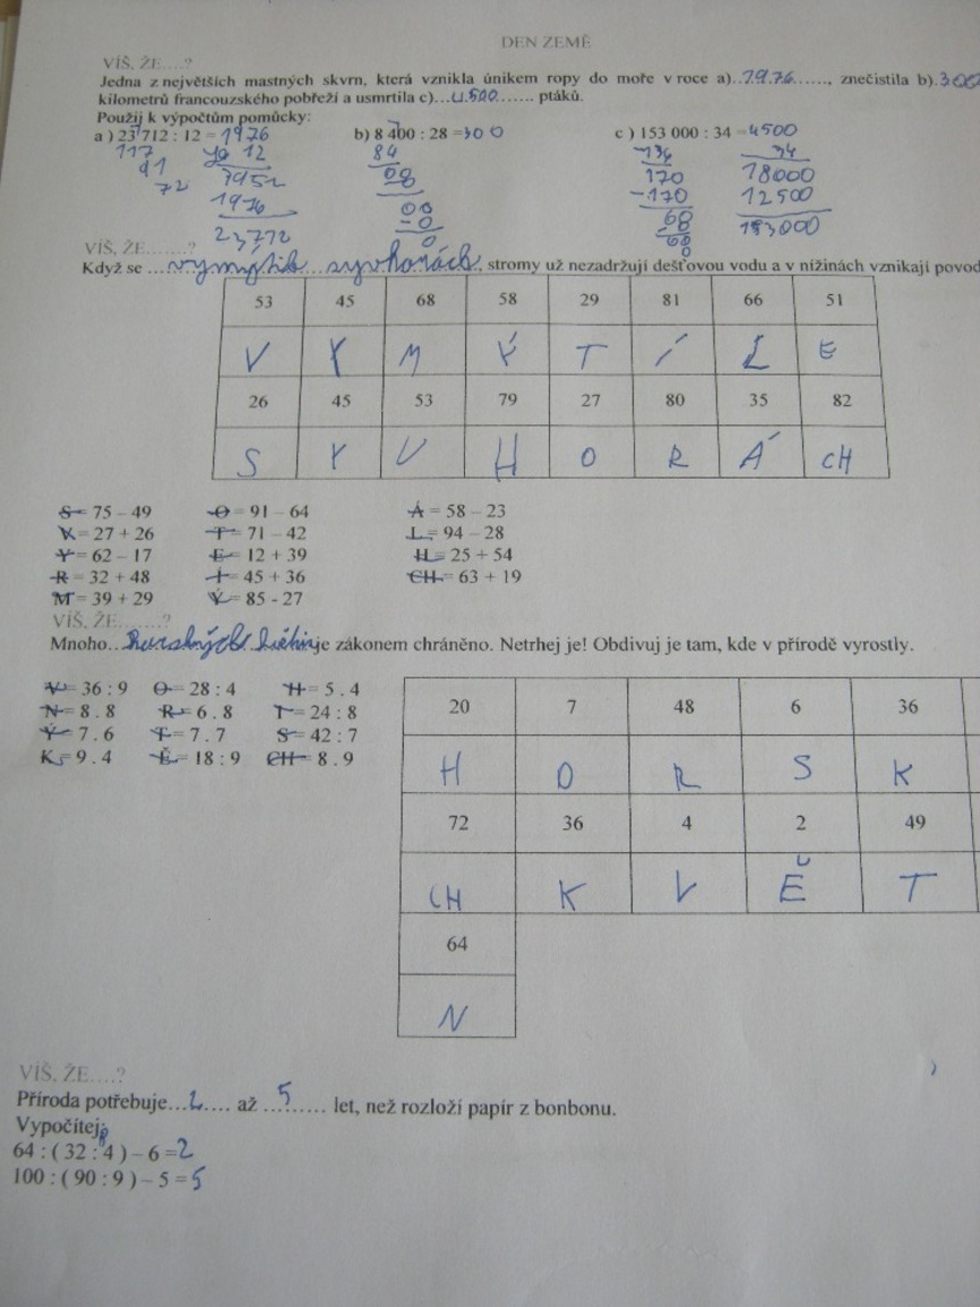 DEN ZEMĚ
VÍŠ, ŽE....?
Jedna z největších mastných skvrn, která vznikla únikem ropy do moře v roce a)..1976......, znečistila b).300
kilometrů francouzského pobřeží a usmrtila c)...4500....... ptáků.
Použij k výpočtům pomůcky:
a ) 23 712 : 12 = 1976 b) 8 400 : 28 =300 c ) 153 000 : 34 =4500
117 12 84 -136 34
91 08 170 18000
72 3952 00 -170 12500
1976 -0 68 153000
23712 0 -68
0
VÍŠ, ŽE.......?
Když se ... ..., stromy už nezadržují dešťovou vodu a v nížinách vznikají povod
53 45 68 58 29 81 66 51
V Y M Ý T Í L E
26 45 53 79 27 80 35 82
S Y V H O R Á CH
S = 75 – 49 O = 91 – 64 Á = 58 – 23
V = 27 + 26 T = 71 – 42 L = 94 – 28
Y = 62 – 17 E = 12 + 39 H = 25 + 54
R = 32 + 48 Í = 45 + 36 CH = 63 + 19
M = 39 + 29 Ý = 85 - 27
VÍŠ, ŽE.......?
Mnoho.. je zákonem chráněno. Netrhej je! Obdivuj je tam, kde v přírodě vyrostly.
V = 36 : 9 O = 28 : 4 H = 5 . 4
N = 8 . 8 R = 6 . 8 I = 24 : 8
Ý = 7 . 6 T = 7 . 7 S = 42 : 7
K = 9 . 4 Ě = 18 : 9 CH = 8 . 9
20 7 48 6 36
H O R S K
72 36 4 2 49
CH K V Ě T
64
N
VÍŠ, ŽE....?
Příroda potřebuje...2.... až ...5...... let, než rozloží papír z bonbonu.
Vypočítej:
8
64 : ( 32 : 4 ) – 6 =2
100 : ( 90 : 9 ) – 5 =5